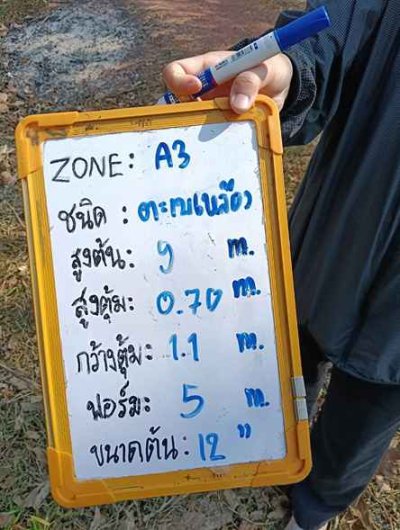 ZONE: A3
ชนิด : ตะแบเหลือง
สูงต้น: 9 m.
สูงตุ้ม: 0.70 m.
กว้างตุ้ม: 1.1 m.
ฟอร์ม: 5 m.
ขนาดต้น: 12 "